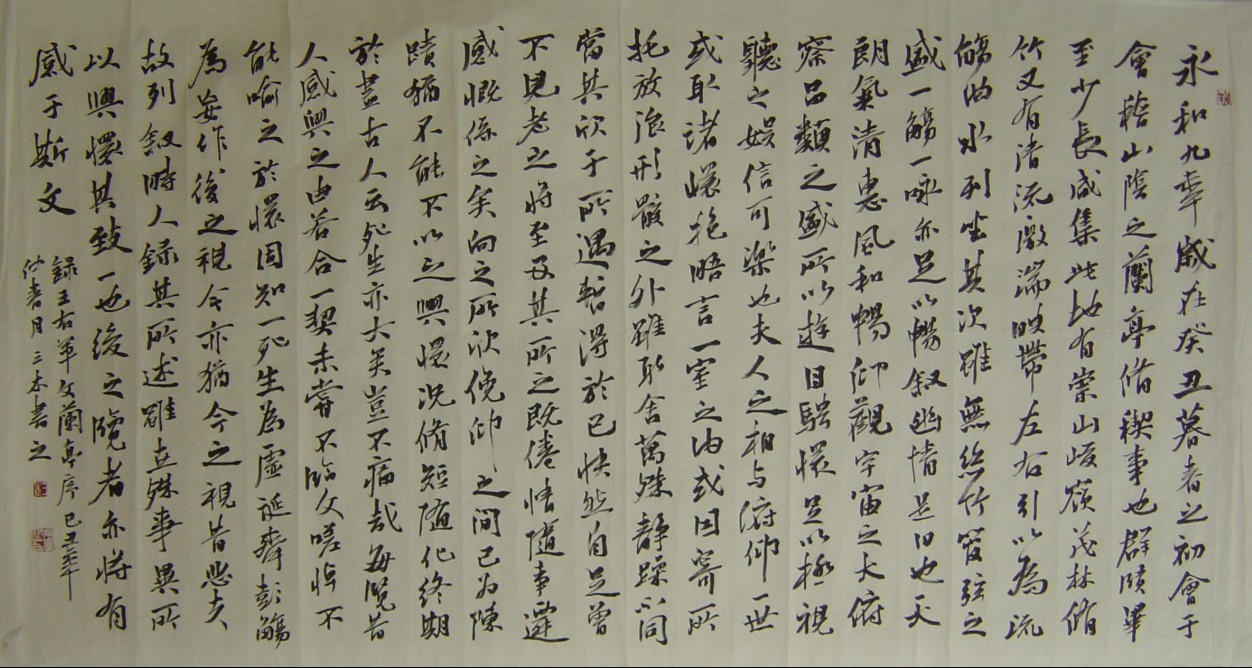 永和九年歲在癸丑暮春之初會于
會稽山陰之蘭亭脩稧事也群賢畢
至少長咸集此地有崇山峻嶺茂林脩
竹又有清流激湍映帶左右引以為流
觴曲水列坐其次雖無絲竹管弦之
盛一觴一詠亦足以暢叙幽情是日也天
朗氣清惠風和暢仰觀宇宙之大俯
察品類之盛所以遊目騁懷足以極視
聽之娛信可樂也夫人之相與俯仰一世
或取諸懷抱晤言一室之內或因寄所
托放浪形骸之外雖取舍萬殊靜躁不同
當其欣于所遇暫得於己快然自足曾
不見老之將至及其所之既倦情隨事遷
感慨係之矣向之所欣俛仰之間已為陳
蹟猶不能不以之興懷況脩短隨化終期
於盡古人云死生亦大矣豈不痛哉每覽昔
人感興之由若合一契未嘗不臨文嗟悼不
能喻之於懷固知一死生為虛誕齊彭殤
為妄作後之視今亦猶今之視昔悲夫
故列叙時人錄其所述雖世殊事異所
以興懷其致一也後之覽者亦將有
感于斯文
錄王右軍文蘭亭序己丑年
仲春月三本書之